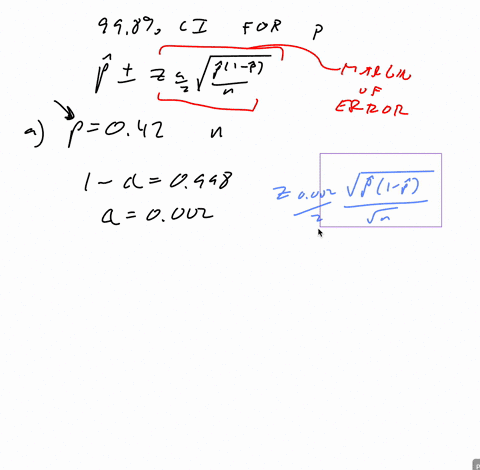 99.8% CI FOR P
p̂ ± z α/2 √(p̂(1-p̂)/n)
MARGIN
OF
ERROR
a) p=0.42 n
1-α=0.998
α=0.002
z 0.002/2 √(p̂(1-p̂))/√n